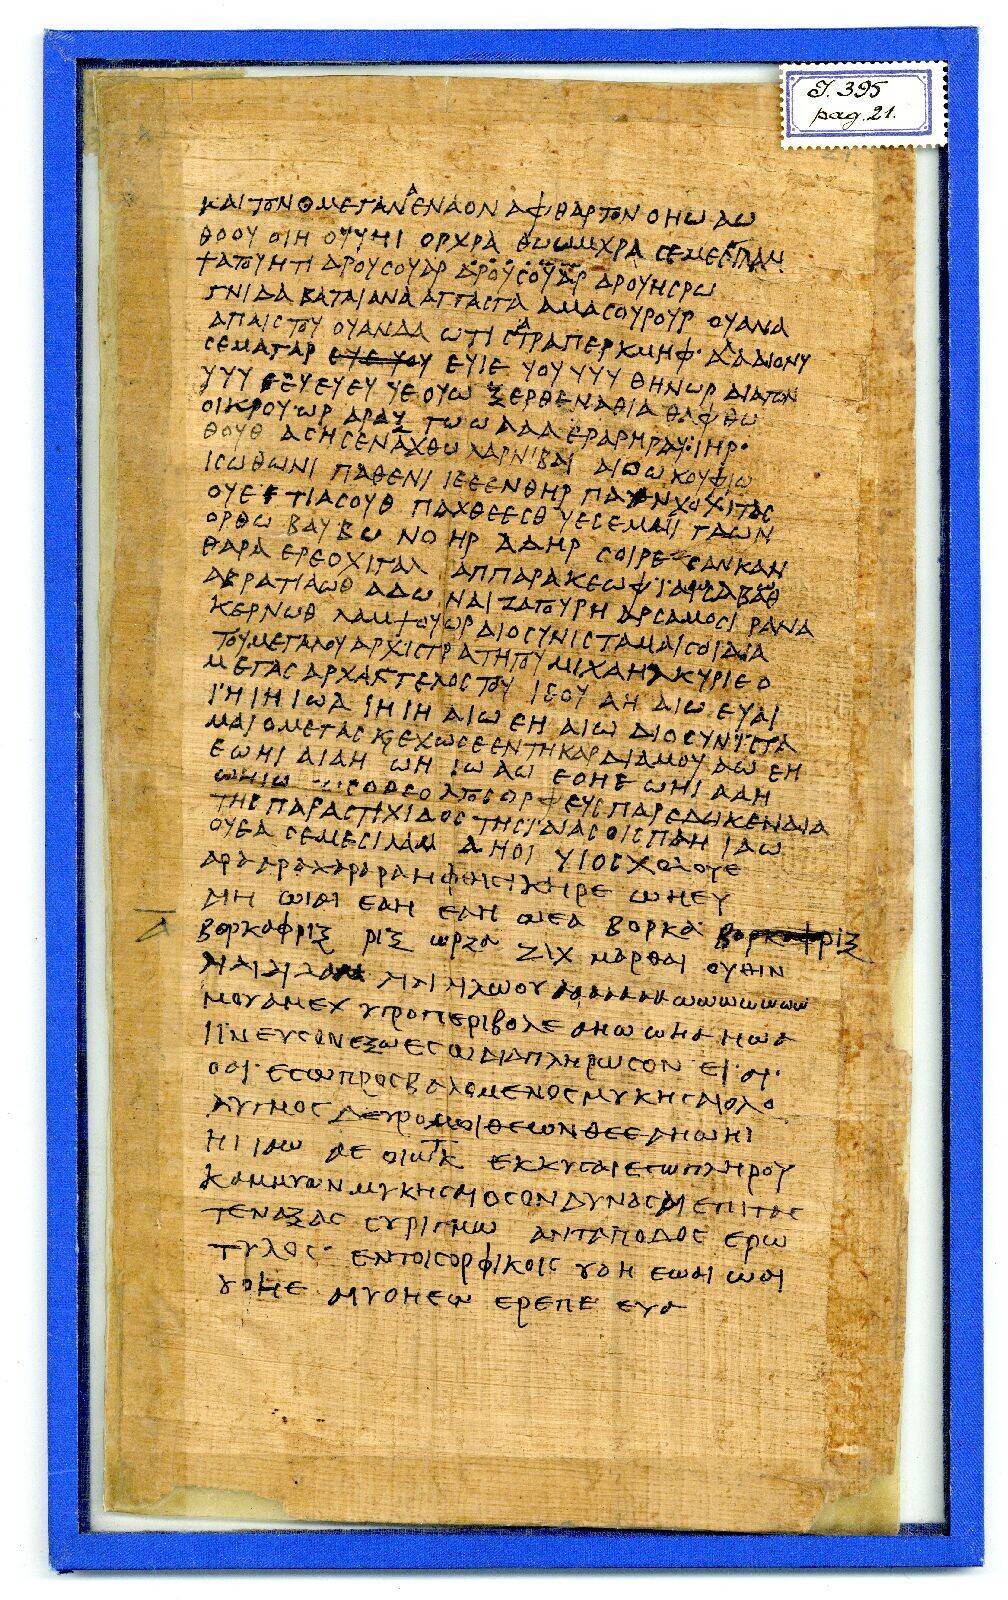 J. 395
pag. 21.
ΚΑΙ ΤΟΝ Θ ΜΕΓΑΝ ΑΕΝΑΟΝ ΑΦΘΑΡΤΟΝ ΟΗΩ ΑΩ
ΘΟΟΥ ΟΙΗ ΟΡΧΡΑ ΘΩΩΜΧΡΑ ΣΕΜΕΣ
ΔΡΟΥΣΟΥΑΡ ΔΡΟΥΣΟΥΑΡ ΔΡΟΥΗΣΡΩ
ΓΝΙΔΑ ΒΑΤΑΙΑΝΑ ΑΓΓΑΣΤΑ ΑΜΑΣΟΥΡΟΥΡ ΟΥΑΝΑ
ΑΠΑΙΣΤΟΥ ΟΥΑΝΔΑ ΩΤΙ ΣΑΤΡΑΠΕΡΚΜΗΦ
ΣΕΜΑΓΑΡ ΕΥΙΕ ΥΟΥ ΥΥΥ ΘΗΝΩΡ
ΥΥΥ ΕΥΕΥΕΥ ΥΕ ΟΥΩ ΞΕΡΘΕΝΑΘΙΑ ΘΑΦΘΩ
ΟΙΚΡΟΥ ΩΡ ΑΡΑΞ ΓΩΩ ΑΑΑ
ΘΟΥΘ ΑΣΗΣΕΝΑΧΘΩ ΛΑΡΝΙΒΑΙ ΑΙΟΩ ΚΟΥΦΙΩ
ΙΣΩΘΩΝΙ ΠΑΘΕΝΙ ΙΕΕΕΝΘΗΡ
ΟΥΕ ΤΙΑΣΟΥΘ ΠΑΧΘΕΕΣΘ ΥΕΣΕΜΜΙΓΑΔΩΝ
ΟΡΘΩ ΒΑΥΒΩ ΝΟΗΡ ΑΔΗΡ ΣΟΙΡΕ ΣΑΝΚΑΝ
ΘΑΡΑ ΕΡΕΣΧΙΓΑΛ ΑΠΠΑΡΑ ΚΕΩΦ ΙΑΩ ΣΑΒΑΩΘ
ΑΒΡΑΤΙΑΩΘ ΑΔΩΝΑΙ ΖΑΓΟΥΡΗ ΑΡΣΑΜΟΣΙ ΡΑΝΑ
ΚΕΡΝΩΘ ΛΑΜΨΟΥΩΡ ΔΙΟ ΣΥΝΙΣΤΑΜΑΙ ΣΟΙ ΔΙΑ
ΤΟΥ ΜΕΓΑΛΟΥ ΑΡΧΙΣΤΡΑΤΗΓΟΥ ΜΙΧΑΗΛ ΚΥΡΙΕ Ο
ΜΕΓΑΣ ΑΡΧΑΓΓΕΛΟΣ ΤΟΥ ΙΕΟΥ ΑΗ ΑΙΩ ΕΥΑΙ
ΙΗ ΙΗ ΙΩΑ ΙΗ ΙΗ ΑΙΩ ΕΗ ΑΙΩ ΔΙΟ ΣΥΝΙΣΤΑ
ΜΑΙ Ο ΜΕΓΑΣ Κ ΕΧΩ ΣΕ ΕΝ ΤΗ ΚΑΡΔΙΑ ΜΟΥ ΑΩ ΕΗ
ΕΩΗΙ ΑΙΑΗ ΩΗ ΙΩ ΑΩ ΕΟΗΕ ΩΗΙ ΑΑΗ
ΩΗΙΩ Ο ΘΕΟΛΟΓΟΣ ΟΡΦΕΥΣ ΠΑΡΕΔΩΚΕΝ ΔΙΑ
ΤΗΣ ΠΑΡΑΣΤΙΧΙΔΟΣ ΤΗΣ ΙΔΙΑΣ ΟΙΣΠΑΗ ΙΑΩ
ΟΥΕΑ ΣΕΜΕΣΙΛΑΜ ΑΗΟΙ ΥΙΟΣ ΧΟΛΟΥΕ
ΑΡΑΑΡΑΧΑΡΑΡΑ ΗΦΘΙΣΙΚΗΡΕ ΩΗΕΥ
ΑΙΗ ΩΙΑΙ ΕΑΗ ΕΑΗ ΩΕΑ ΒΟΡΚΑ ΒΟΡΚΑΦΡΙΞ
ΒΟΡΚΑΦΡΙΞ ΡΙΞ ΩΡΖΑ ΖΙΧ ΜΑΡΘΑΙ ΟΥΘΙΝ
ΩΩΩΩΩΩΩ
ΜΟΥΑΜΕΧ ΥΠΡΟΠΕΡΙΒΟΛΕ ΑΗΩ ΩΗΑ ΗΩΑ
ΠΝΕΥΣΟΝ ΕΞΩ ΕΣΩ ΔΙΑΠΛΗΡΩΣΟΝ ΕΙ ΟΙ
ΟΑΙ ΕΣΩ ΠΡΟΣΒΑΛΟΜΕΝΟΣ ΜΥΚΗΣΑΙ ΟΛΟ
ΛΥΓΜΟΣ ΔΕΥΡΟ ΜΟΙ ΘΕΩΝ ΘΕΕ ΑΗΩΗΙ
ΗΙ ΙΑΩ ΑΕ ΟΙΩΤΚ ΕΚΚΥΣΑΙ ΕΣΩ ΠΛΗΡΟΥ
ΚΑΜΜΥΩΝ ΜΥΚΗΣΑΙ ΟΣΟΝ ΔΥΝΑΣΑΙ ΕΠΙΤΑΣ
ΤΕΝΑΞΑΣ ΣΥΡΙΓΜΩ ΑΝΤΑΠΟΔΟΣ ΕΡΩ
ΤΥΛΟΣ ΕΝ ΤΟΙΣ ΟΡΦΙΚΟΙΣ ΥΟΗ ΕΩΑΙ ΩΑΙ
ΥΟΗΕ ΑΥΟΗΕΩ ΕΡΕΠΕ ΕΥΑ